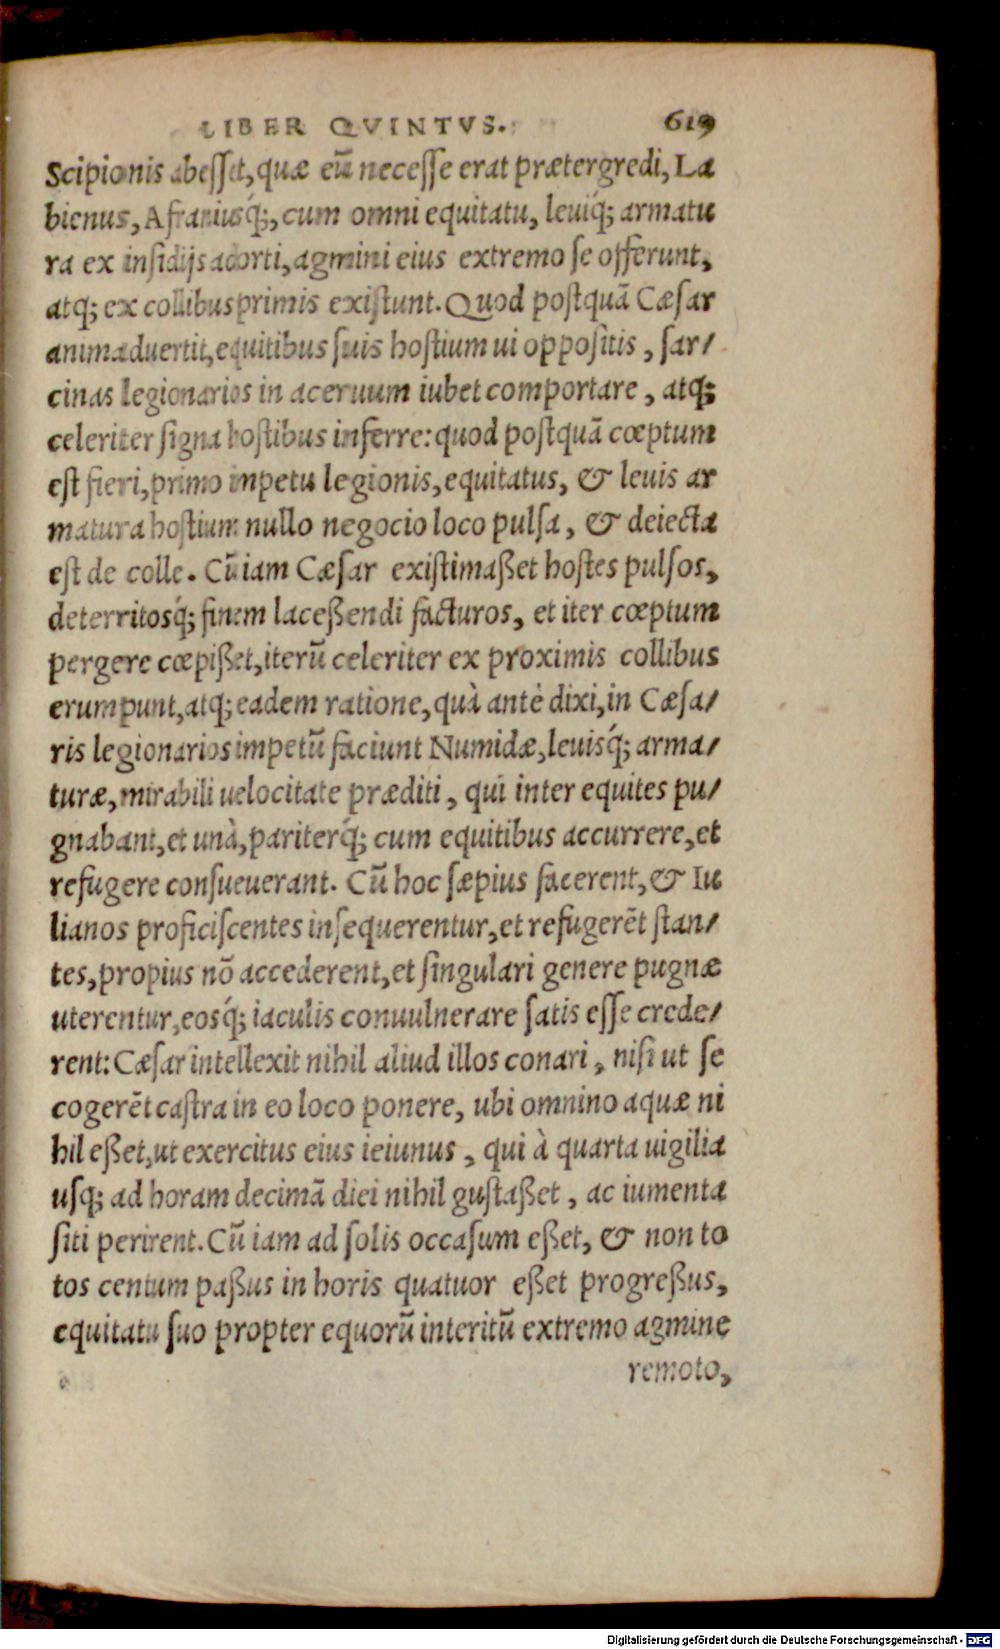 LIBER QVINTVS. 619
Scipionis abesset, quæ eū necesse erat prætergredi, La
bienus, Afraniusq́;, cum omni equitatu, leuiq́; armatu
ra ex insidijs adorti, agmini eius extremo se offerunt,
atq; ex collibus primis existunt. Quod postquā Cæsar
animaduertit, equitibus suis hostium ui oppositis, sar/
cinas legionarios in aceruum iubet comportare, atq;
celeriter signa hostibus inferre: quod postquā cœptum
est fieri, primo impetu legionis, equitatus, & leuis ar
matura hostium nullo negocio loco pulsa, & deiecta
est de colle. Cū iam Cæsar existimaßet hostes pulsos,
deterritosq́; finem laceßendi facturos, et iter cœptum
pergere cœpißet, iterū celeriter ex proximis collibus
erumpunt, atq; eadem ratione, quà antè dixi, in Cæsa/
ris legionarios impetū faciunt Numidæ, leuisq́; arma/
turæ, mirabili uelocitate præditi, qui inter equites pu/
gnabant, et unà, pariterq́; cum equitibus accurrere, et
refugere consueuerant. Cū hoc sæpius facerent, & Iu
lianos proficiscentes insequerentur, et refugerēt stan/
tes, propius nō accederent, et singulari genere pugnæ
uterentur, eosq́; iaculis conuulnerare satis esse crede/
rent: Cæsar intellexit nihil aliud illos conari, nisi ut se
cogerēt castra in eo loco ponere, ubi omnino aquæ ni
hil eßet, ut exercitus eius ieiunus, qui à quarta uigilia
usq; ad horam decimā diei nihil gustaßet, ac iumenta
siti perirent. Cū iam ad solis occasum eßet, & non to
tos centum paßus in horis quatuor eßet progreßus,
equitatu suo propter equorū interitū extremo agmine
remoto,
Digitalisierung gefördert durch die Deutsche Forschungsgemeinschaft - DFG